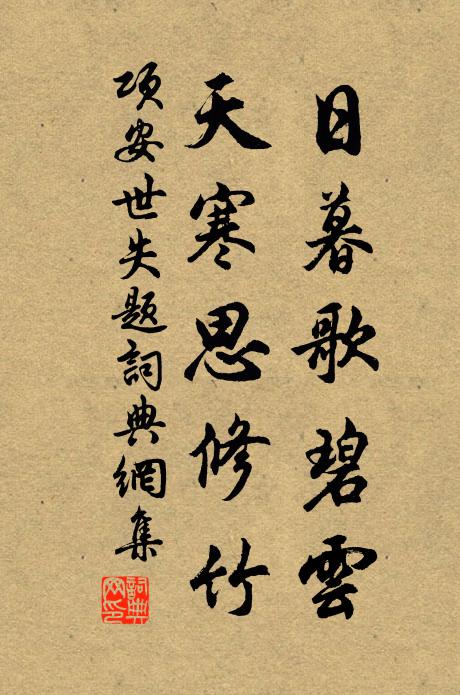 日暮歌碧雲
天寒思修竹
項安世失題詞典網集
詞典網印